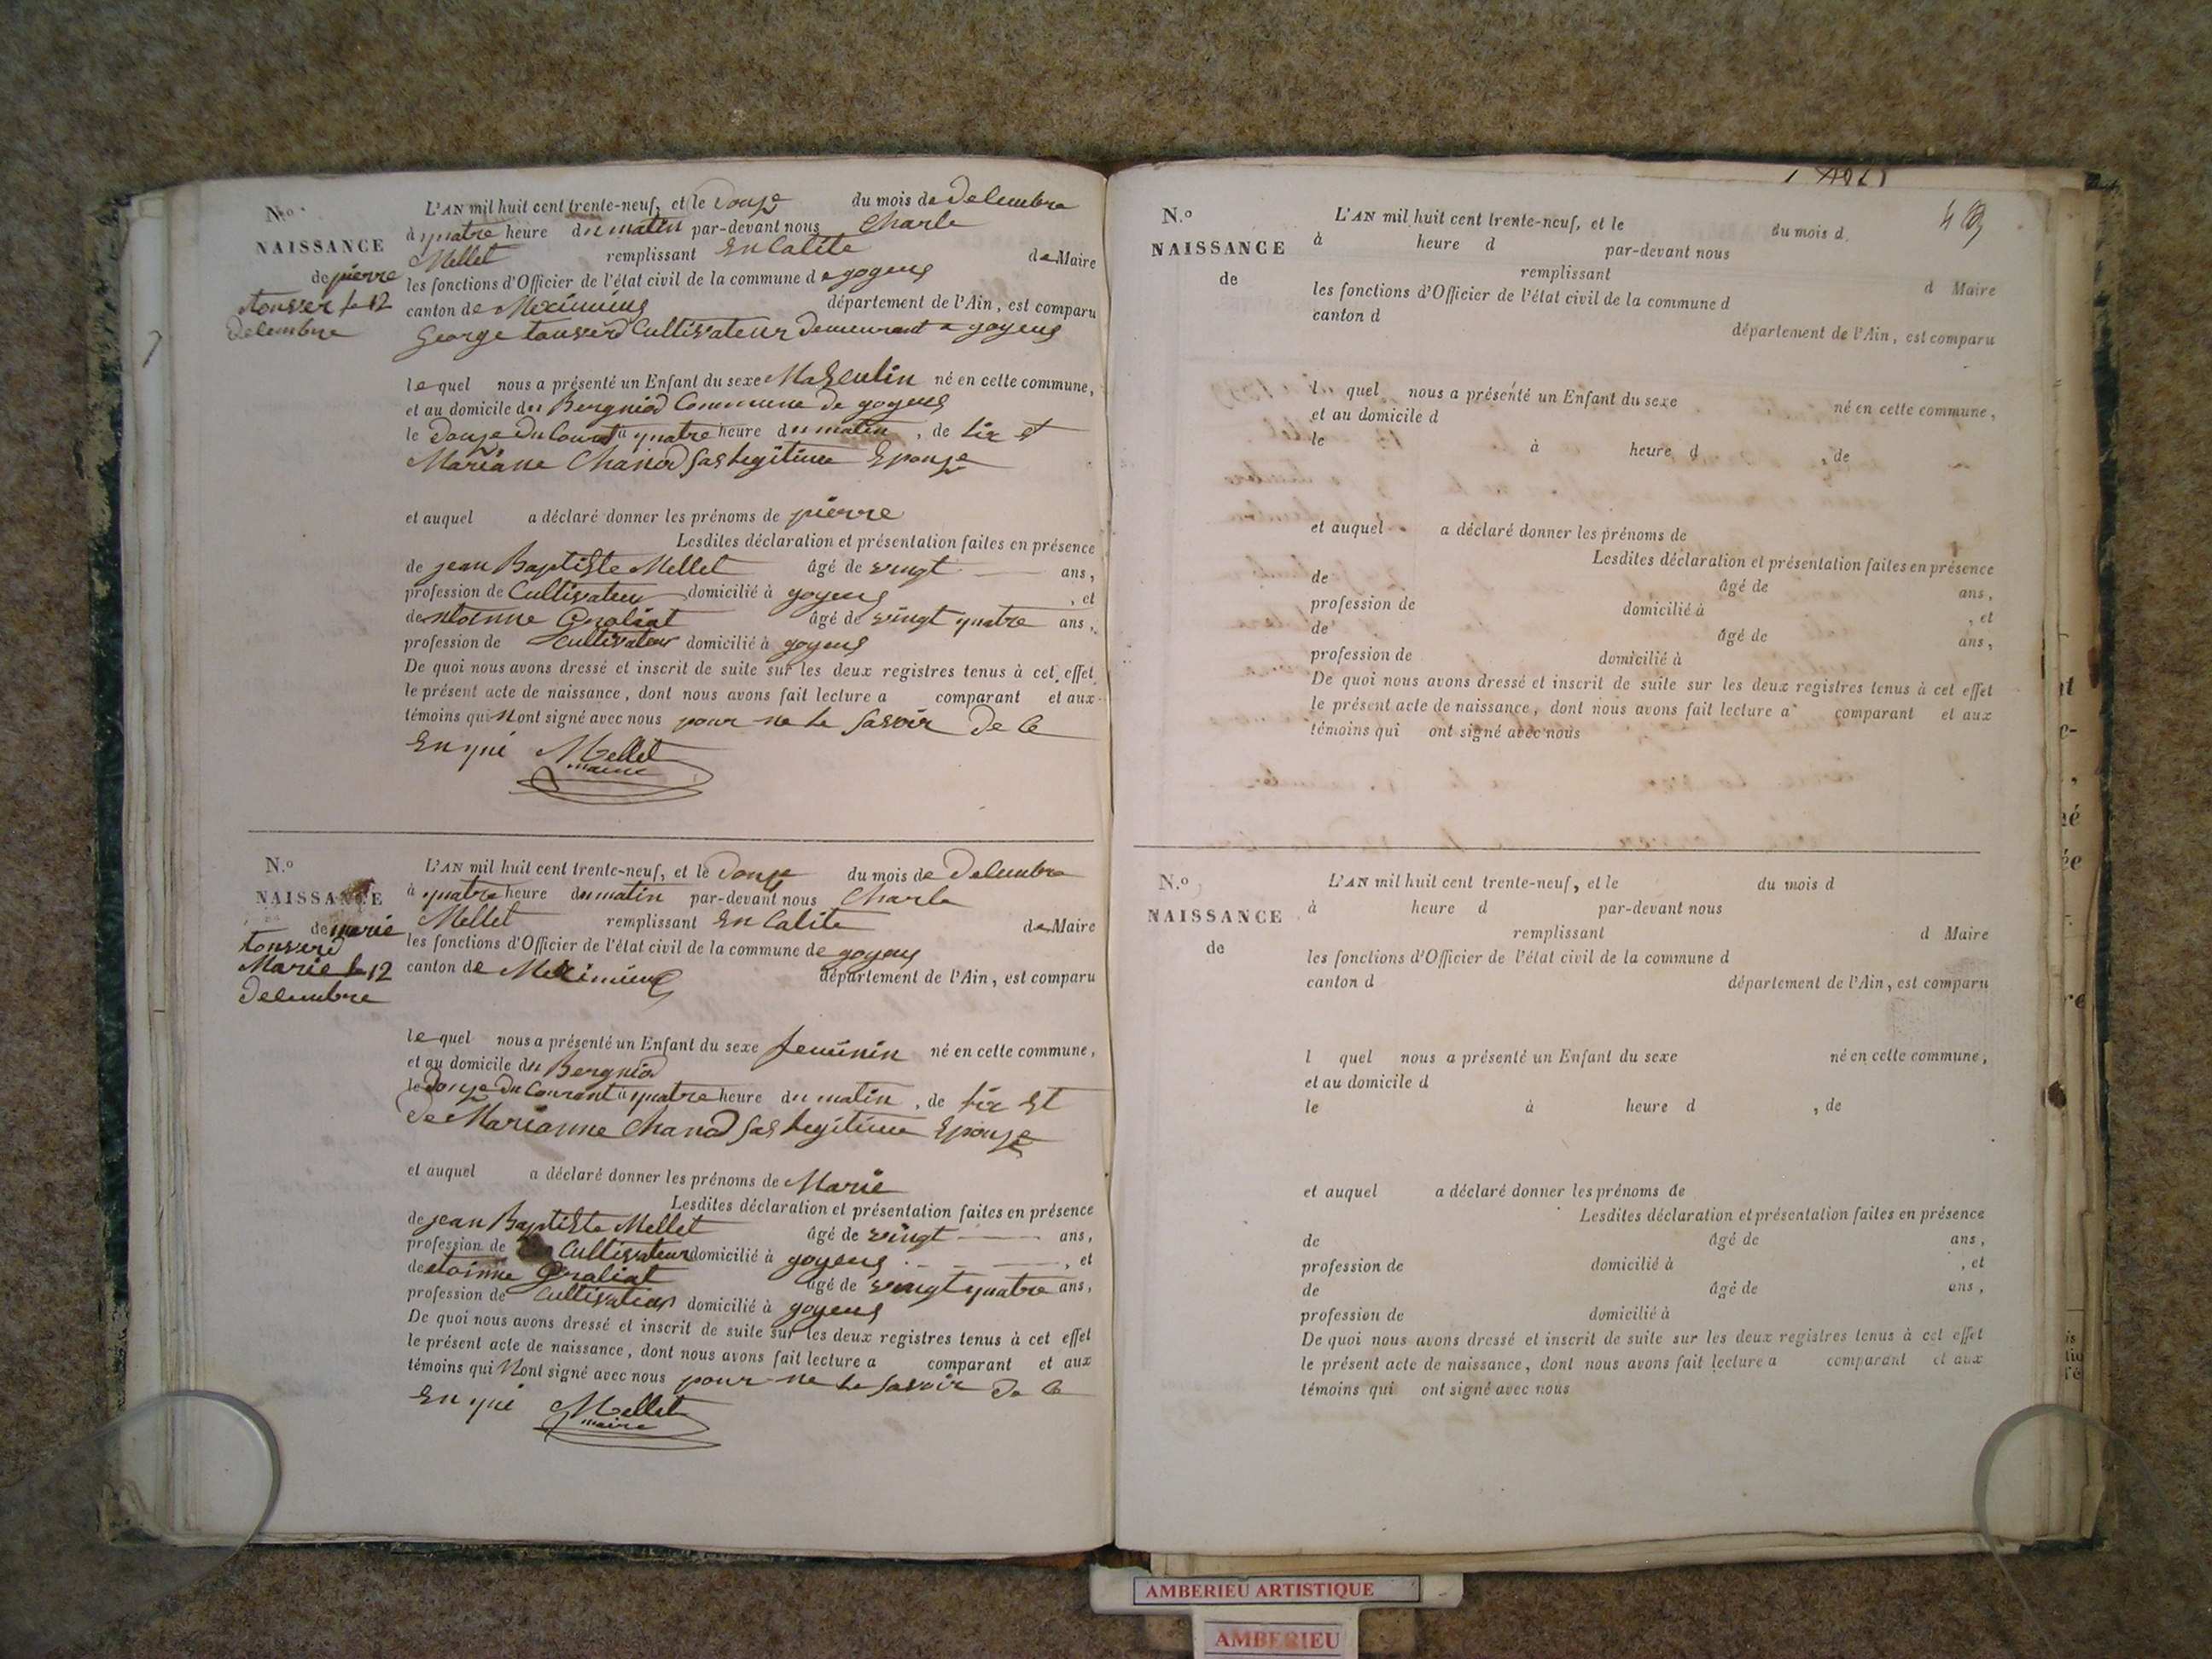 N.o
NAISSANCE
de pierre
tonverd le 12
decembre
L'AN mil huit cent trente-neuf, et le Douze du mois de Decembre
à quatre heure du matin par-devant nous Charle
Mellet remplissant En Calite de Maire
les fonctions d'Officier de l'état civil de la commune de goyeus
canton de Meximieus département de l'Ain, est comparu
George tonverd Cultivateur Demeurant a goyeus
lequel nous a présenté un Enfant du sexe Masculin né en cette commune,
et au domicile du Bergniod Commune de goyeus
le Douze Du Courat à quatre heure du matin, de lix et
Mariane Chanod Sas legitime Epouze
et auquel a déclaré donner les prénoms de pierre
Lesdites déclaration et présentation faites en présence
de jean Baptiste Mellet âgé de vingt ans,
profession de Cultivateur domicilié à goyeus, et
de âgé de vingt quatre ans,
profession de Cultivateur domicilié à goyeus
De quoi nous avons dressé et inscrit de suite sur les deux registres tenus à cet effet
le présent acte de naissance, dont nous avons fait lecture a comparant et aux
témoins qui Nont signé avec nous pour ne le Savoir De Ce
Enqui Mellet
maire
N.o
NAISSANCE
de marie
tonverd
Marie le 12
Decembre
L'AN mil huit cent trente-neuf, et le Douze du mois de Decembre
à quatre heure du matin par-devant nous Charle
Mellet remplissant En Calite de Maire
les fonctions d'Officier de l'état civil de la commune de goyeus
canton de Meximieus département de l'Ain, est comparu
lequel nous a présenté un Enfant du sexe feminin né en cette commune,
et au domicile du Bergniod
le Douze Du Courant à quatre heure du matin, de lix Et
De Marianne Chanod Sas legitime Epouze
et auquel a déclaré donner les prénoms de Marie
Lesdites déclaration et présentation faites en présence
de jean Baptiste Mellet âgé de vingt ans,
profession de Cultivateur domicilié à goyeus, et
de âgé de vingt quatre ans,
profession de Cultivateur domicilié à goyeus
De quoi nous avons dressé et inscrit de suite sur les deux registres tenus à cet effet
le présent acte de naissance, dont nous avons fait lecture a comparant et aux
témoins qui Nont signé avec nous pour ne le Savoir De Ce
En qui Mellet
maire
N.o
NAISSANCE
de
L'AN mil huit cent trente-neuf, et le du mois d
à heure d par-devant nous
remplissant d Maire
les fonctions d'Officier de l'état civil de la commune d
canton d département de l'Ain, est comparu
l quel nous a présenté un Enfant du sexe né en cette commune,
et au domicile d
le à heure d , de
et auquel a déclaré donner les prénoms de
Lesdites déclaration et présentation faites en présence
de âgé de ans,
profession de domicilié à , et
de âgé de ans,
profession de domicilié à
De quoi nous avons dressé et inscrit de suite sur les deux registres tenus à cet effet
le présent acte de naissance, dont nous avons fait lecture a comparant et aux
témoins qui ont signé avec nous
N.o
NAISSANCE
de
L'AN mil huit cent trente-neuf, et le du mois d
à heure d par-devant nous
remplissant d Maire
les fonctions d'Officier de l'état civil de la commune d
canton d département de l'Ain, est comparu
l quel nous a présenté un Enfant du sexe né en cette commune,
et au domicile d
le à heure d , de
et auquel a déclaré donner les prénoms de
Lesdites déclaration et présentation faites en présence
de âgé de ans,
profession de domicilié à , et
de âgé de ans,
profession de domicilié à
De quoi nous avons dressé et inscrit de suite sur les deux registres tenus à cet effet
le présent acte de naissance, dont nous avons fait lecture a comparant et aux
témoins qui ont signé avec nous
AMBERIEU ARTISTIQUE
AMBERIEU